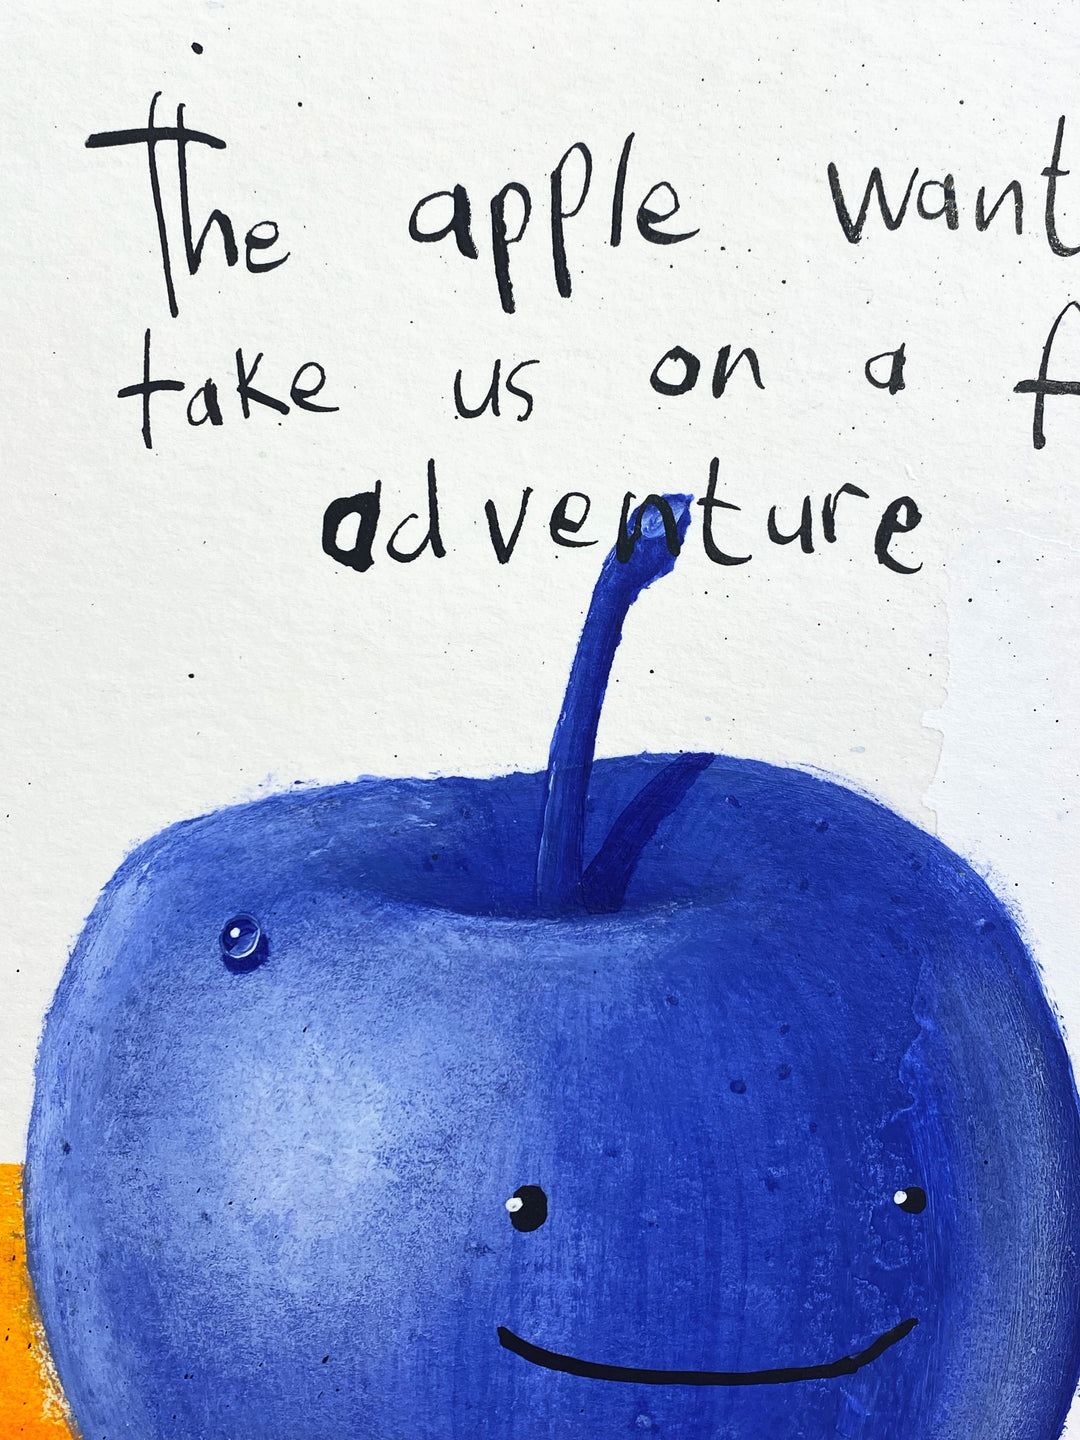 The apple want
take us on a f
adventure